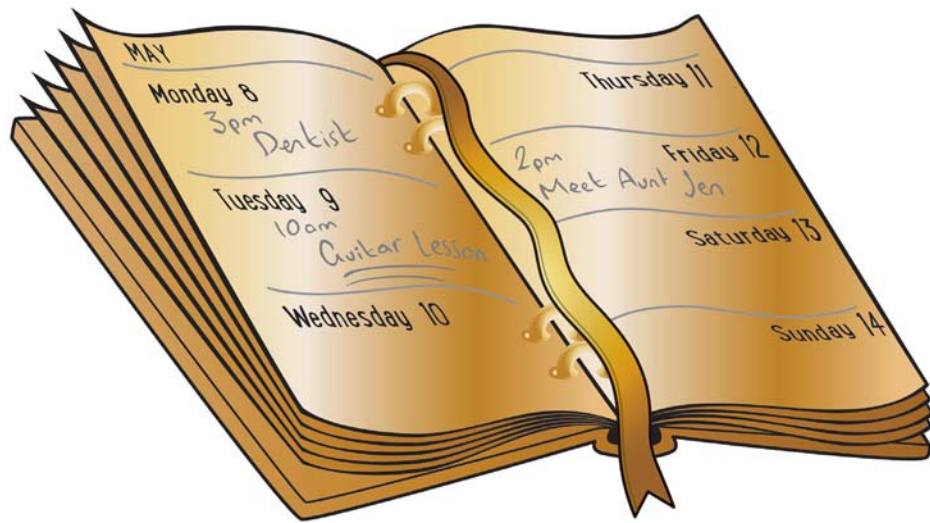 MAY
Monday 8
3pm
Dentist
Tuesday 9
10am
Guitar Lesson
Wednesday 10
Thursday 11
Friday 12
2pm
Meet Aunt Jen
Saturday 13
Sunday 14